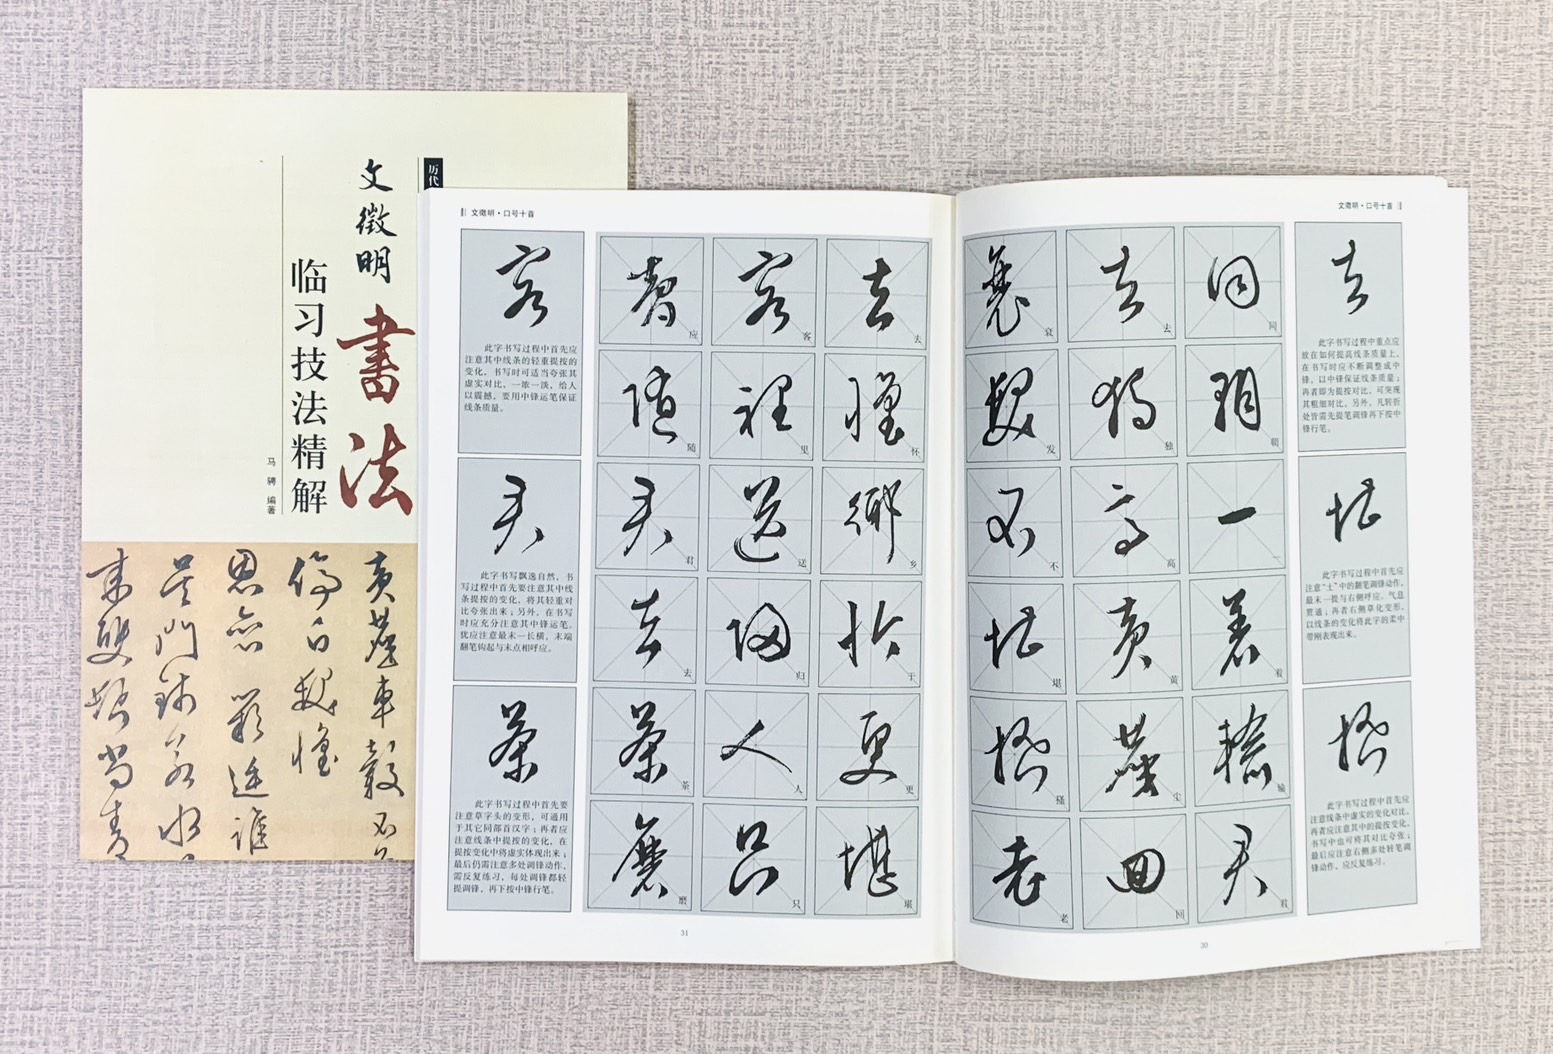 历代
文徵明
書法
临习技法精解
马骋 编著
黄尘车毂不
停白发怀
思亦
吴门
文徵明·口号十首
此字书写过程中首先应
注意其中线条的轻重提按的
变化，书写时可适当夸张其
虚实对比，一浓一淡，给人
以震撼，要用中锋运笔保证
线条质量。
此字书写飘逸自然，书
写过程中首先要注意其中线
条提按的变化，将其轻重对
比夸张出来；另外，在书写
时应充分注意其中锋运笔。
犹应注意最末一长横，末端
翻笔钩起与末点相呼应。
此字书写过程中首先要
注意草字头的变形，可通用
于其它同部首汉字；再者应
注意线条中提按的变化，在
提按变化中将虚实体现出来；
最后仍需注意多处调锋动作，
需反复练习，每处调锋都轻
提调锋，再下按中锋行笔。
应 客 去
随 里 怀
君 送 乡
去 归 于
茶 人 更
磨 只 堪
31
文徵明·口号十首
衰 去 同
发 独 朝
不 高 一
堪 黄 着
搔 尘 输
老 回 君
此字书写过程中重点应
放在如何提高线条质量上，
在书写时应不断调整成中
锋，以中锋保证线条质量；
再者即为提按对比，可突现
其粗细对比，另外，凡转折
处皆需先提笔调锋再下按中
锋行笔。
此字书写过程中首先应
注意“土”中的翻笔调锋动作，
最末一提与右侧呼应，气息
贯通；再者右侧草化变形，
以线条的变化将此字的柔中
带刚表现出来。
此字书写过程中首先应
注意线条中虚实的变化对比，
再者应注意其中的提按变化，
书写中也可将其对比夸张；
最后应注意右侧多处转笔调
锋动作，应反复练习。
30